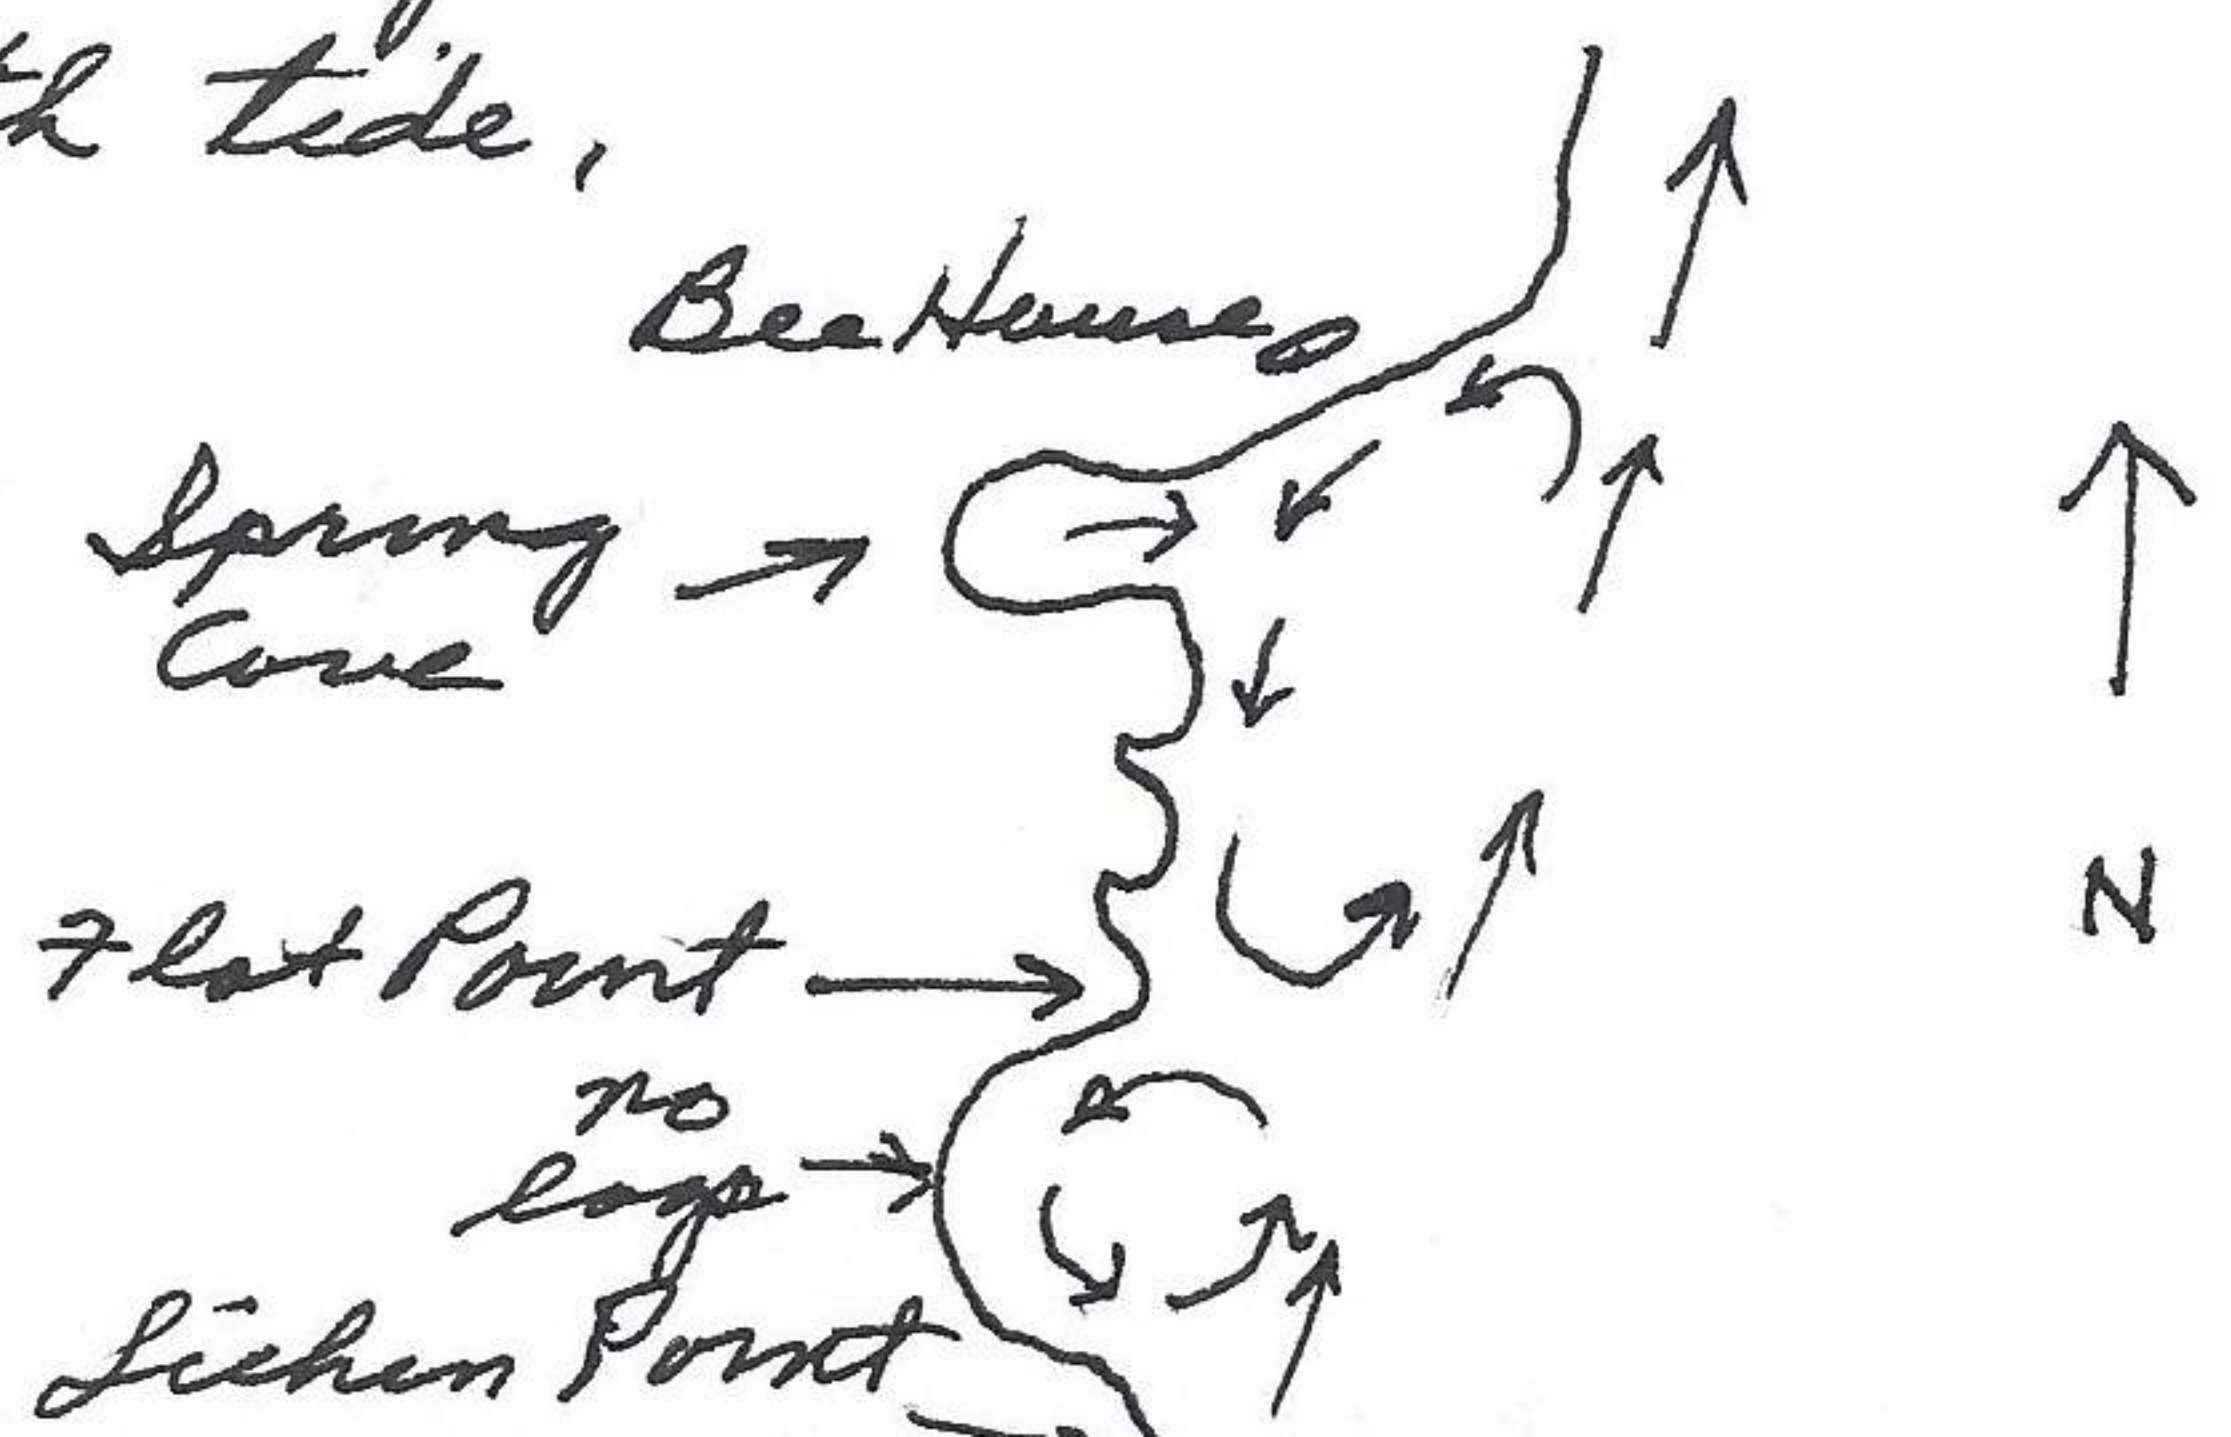 tide,
Bee House
Spring
Cove
Flat Point
N
no
logs
Lichen Point